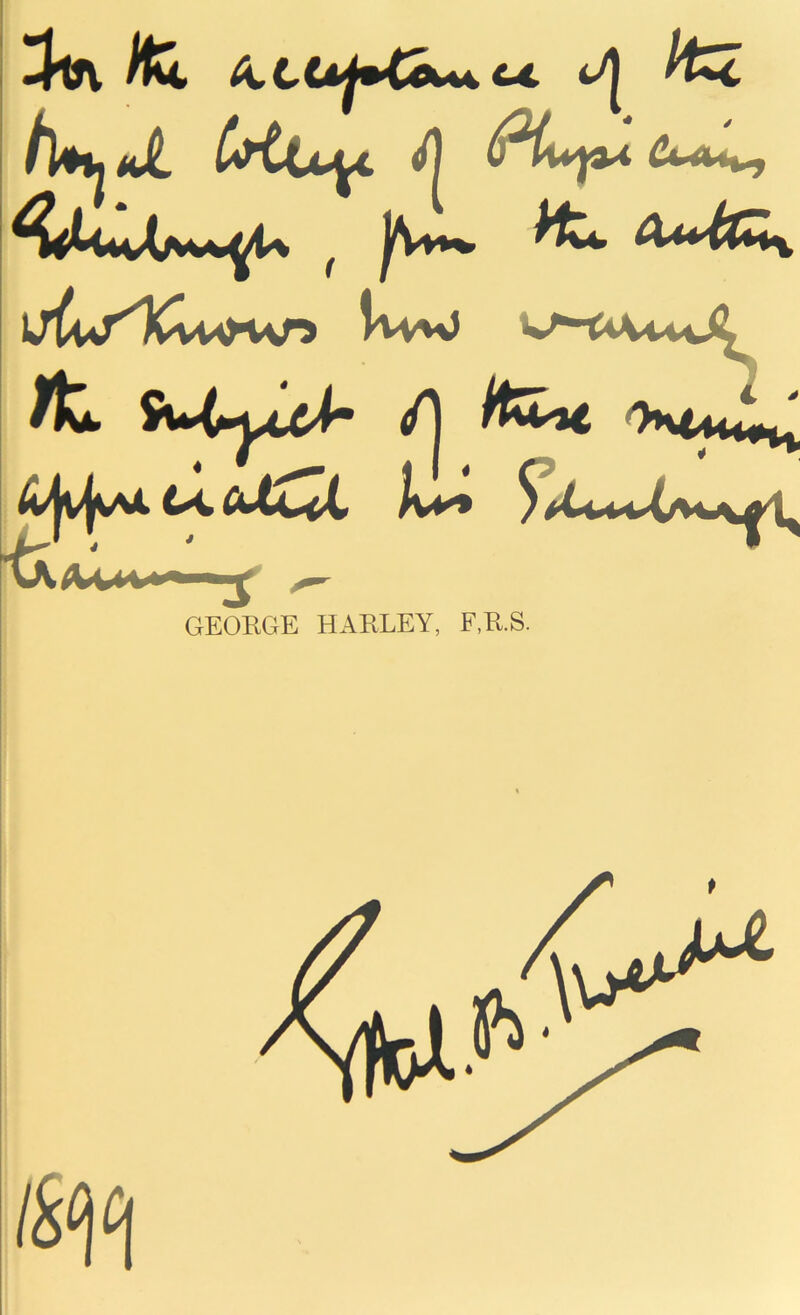 For the acceptance of the
Royal College of Physicians
Edinburgh, from the author
who knows how warmly
the subject of these memoirs
appreciated his Edinburgh
training –
GEORGE HARLEY, F,R.S.
Ethel. B. Tweedie
1899